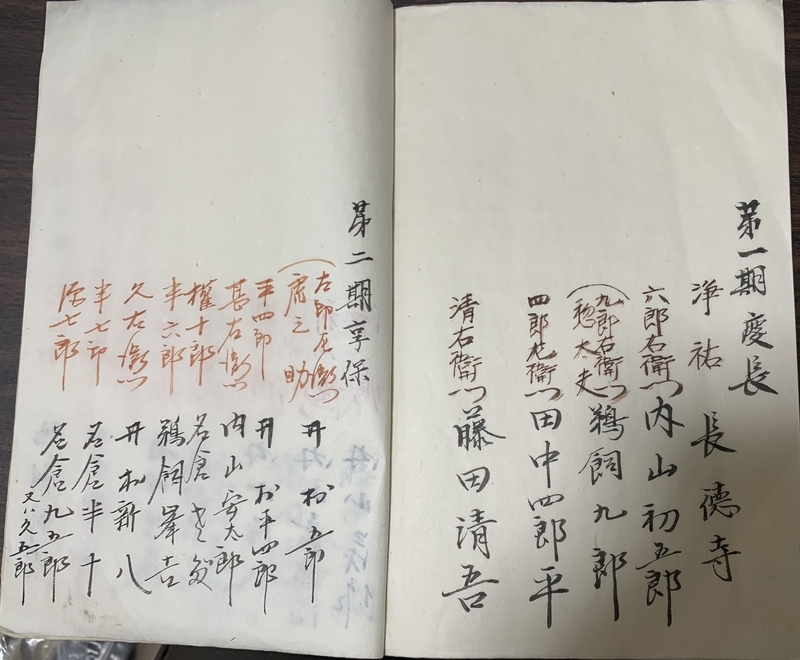 第一期慶長
浄祐 長德寺
六郎右衛门 内山初五郎
九郎右衛门
(惣太夫) 鵜飼九郎
四郎左衛门 田中四郎平
清右衛门 藤田清吾
第二期享保
右郎左衛门
(虎之助) 丹 松五郎
平四郎 丹 お平四郎
甚右衛门 内山安太郎
權十郎 名倉
半六郎 鵜飼峯吉
久右衛门 丹 新八
半七郎 名倉半十
源七郎 名倉九五郎
又ハ久五郎